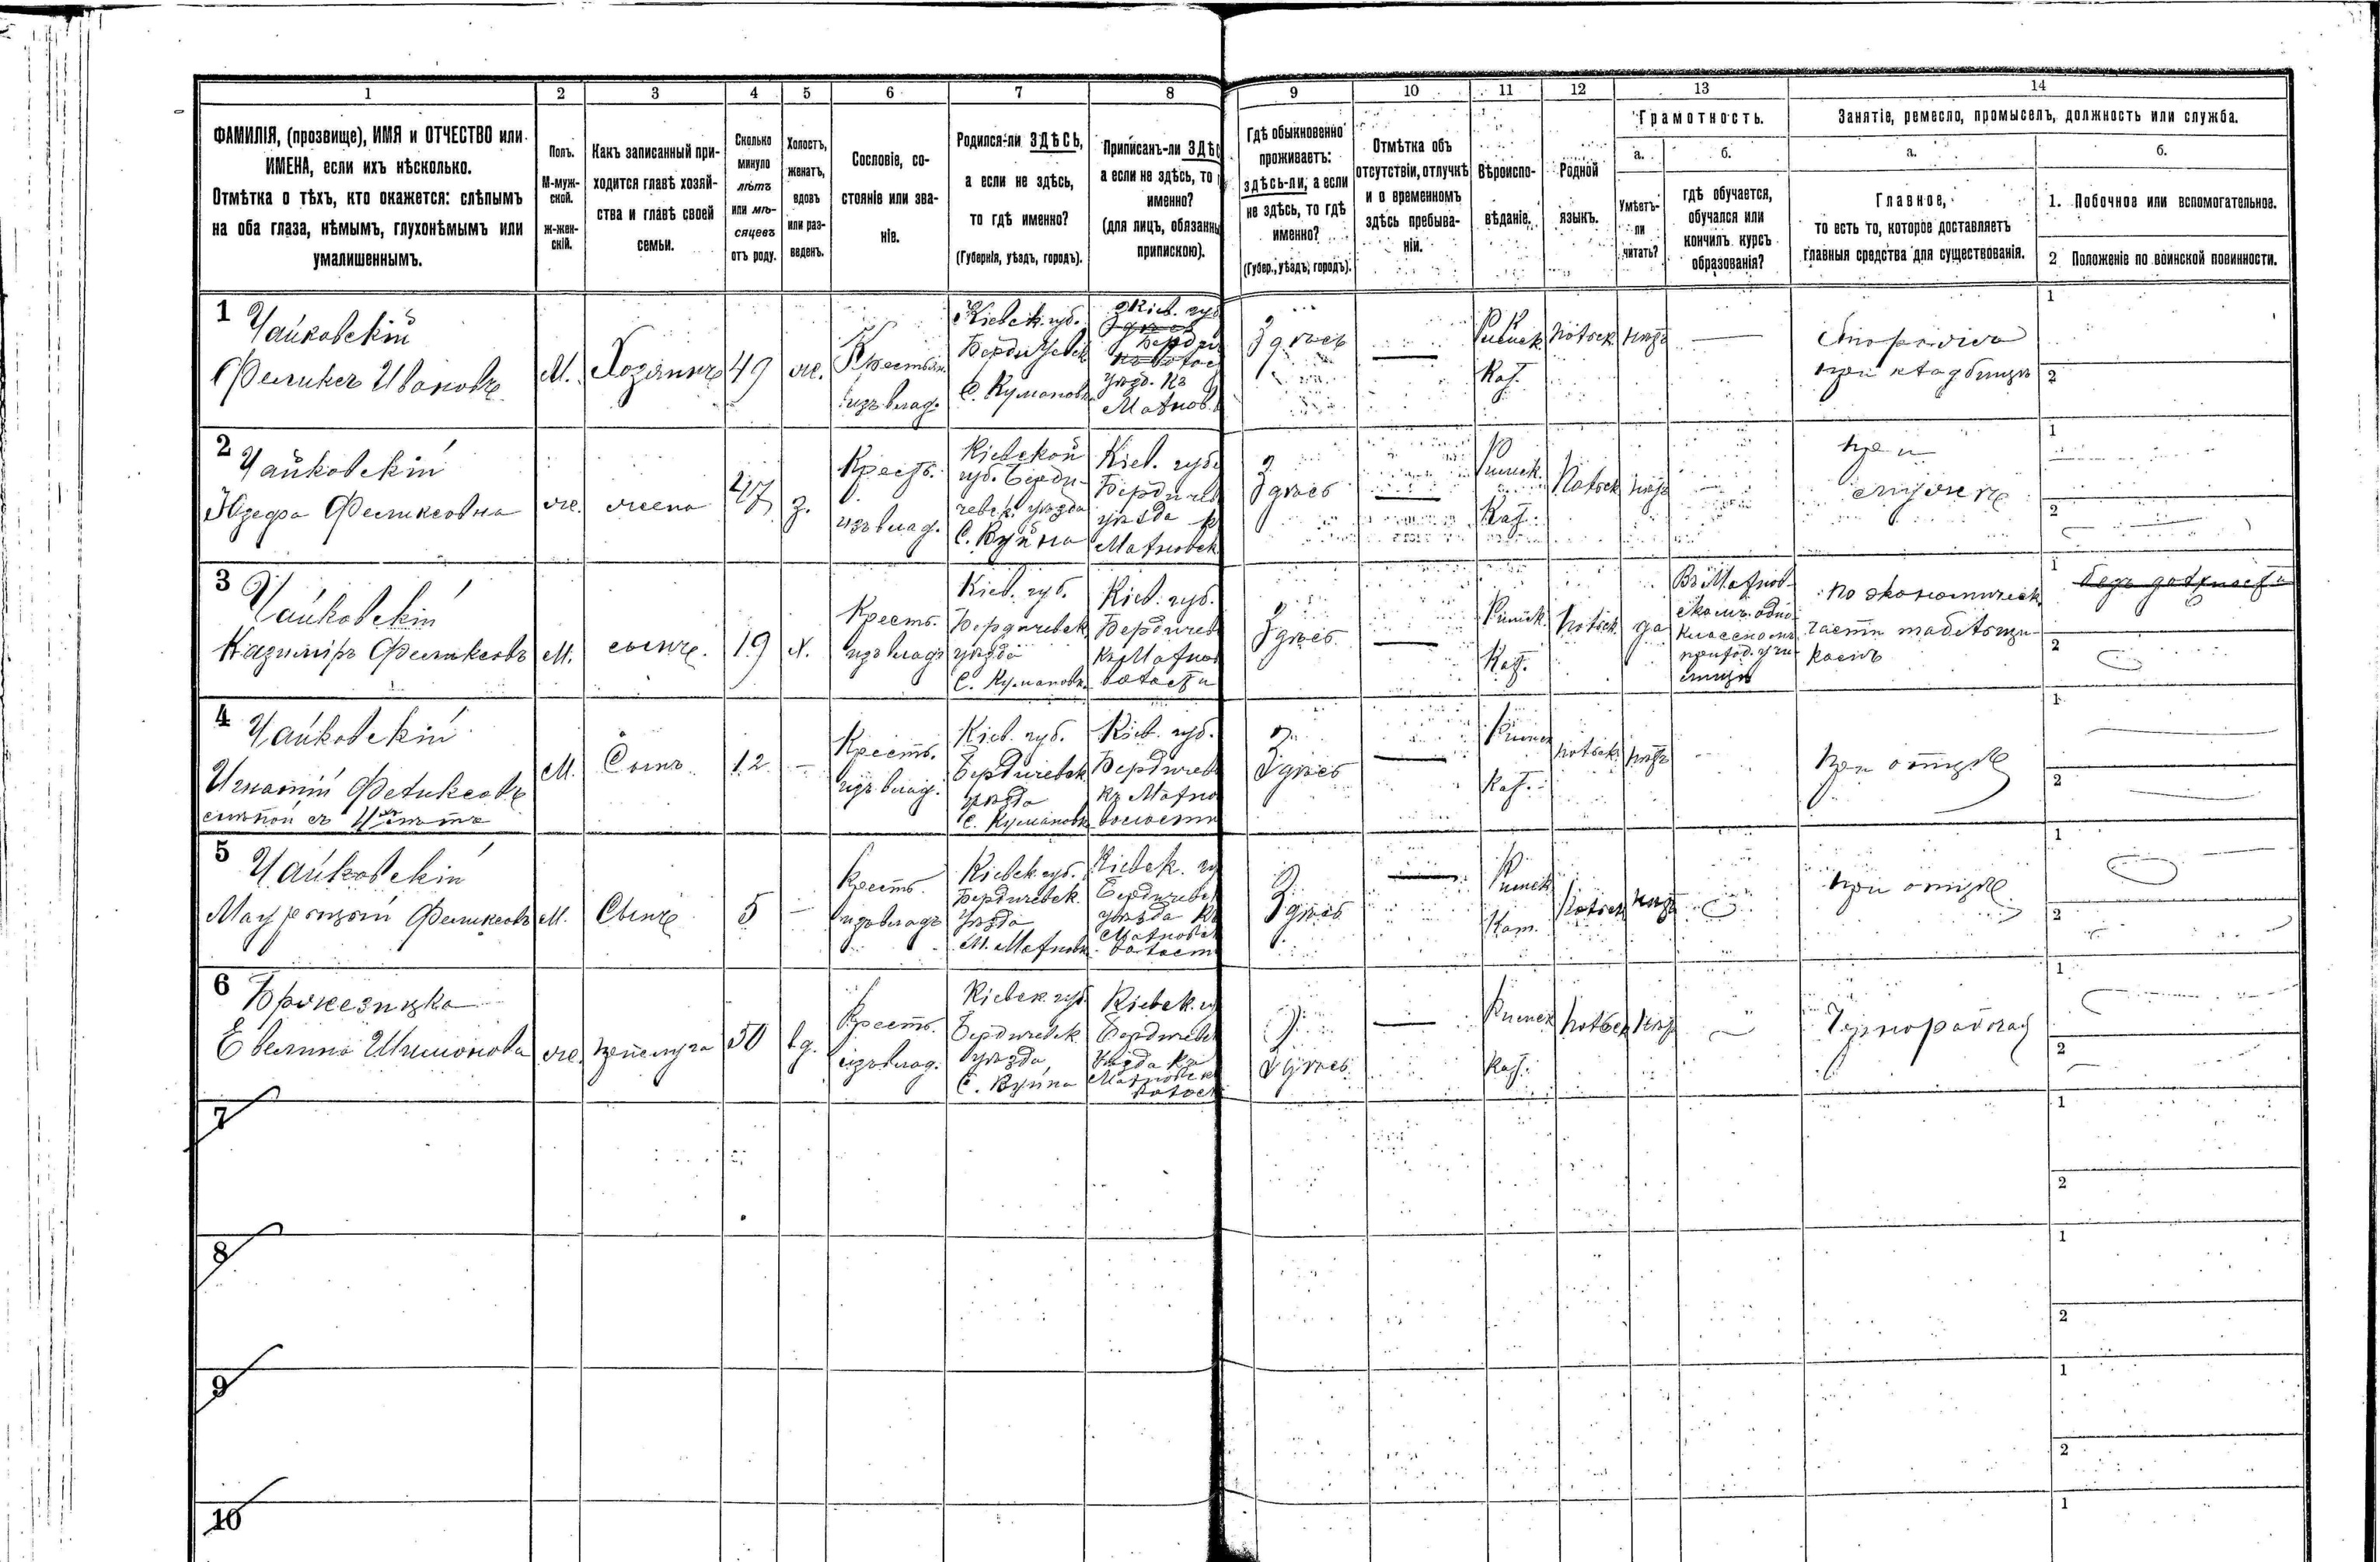 1 2 3 4 5 6 7 8 9 10 11 12 13 14
ФАМИЛІЯ, (прозвище), ИМЯ и ОТЧЕСТВО или
ИМЕНА, если ихъ нѣсколько.
Отмѣтка о тѣхъ, кто окажется: слѣпымъ
на оба глаза, нѣмымъ, глухонѣмымъ или
умалишеннымъ.
Полъ.
М-муж-
ской.
ж-жен-
скій.
Какъ записанный при-
ходится главѣ хозяй-
ства и главѣ своей
семьи.
Сколько
минуло
лѣтъ
или мѣ-
сяцевъ
отъ роду.
Холостъ,
женатъ,
вдовъ
или раз-
веденъ.
Сословіе, со-
стояніе или зва-
ніе.
Родился-ли ЗДѢСЬ,
а если не здѣсь,
то гдѣ именно?
(Губернія, уѣздъ, городъ).
Приписанъ-ли ЗДѢС
а если не здѣсь, то
именно?
(для лицъ, обязанны
припискою).
Гдѣ обыкновенно
проживаетъ:
здѣсь-ли, а если
не здѣсь, то гдѣ
именно?
(Губер., уѣздъ, городъ).
Отмѣтка объ
отсутствіи, отлучкѣ
и о временномъ
здѣсь пребыва-
ніи.
Вѣроиспо-
вѣданіе.
Родной
языкъ.
Грамотность.
а. б.
Умѣетъ-
ли
читать?
гдѣ обучается,
обучался или
кончилъ курсъ
образованія?
Занятіе, ремесло, промыселъ, должность или служба.
а. б.
Главное,
то есть то, которое доставляетъ
главныя средства для существованія.
1. Побочное или вспомогательное.
2 Положеніе по воинской повинности.
1
Чайковскій
Феликсъ Ивановъ
М.
Хозяинъ
49
же.
Крестьян.
изъ влад.
Кіевск. губ.
Бердичевск
С. Кумановк
Кіев. губ
Бердич
уѣзд. Къ
Махнов.
Здѣсь
Римск.
Кат.
польск.
нѣтъ
при кладбищѣ
1
2
2
Чайковскій
Юзефа Феликсовна
же.
жена
47
з.
Крест.
изъ влад.
Кіевской
губ. Берди-
чевск. уѣзда
С. Вуйна
Кіев. губ.
Бердичев
уѣзда к
Махновск
Здѣсь
Римск.
Кат.
польск
нѣтъ
при
мужѣ
1
2
3
Чайковскій
Казиміръ Феликсовъ
М.
сынъ.
19
х.
Крест.
изъ влад.
Кіев. губ.
Бердичевск
уѣзда
С. Кумановк.
Кіев. губ.
Бердичев
Къ Махнов
волости
Здѣсь
Римск.
Кат.
польск.
да
Въ Махнов-
скомъ одно-
классномъ
приход. учи-
лищѣ
по экономическ.
части
1
2
4
Чайковскій
Игнатій Феликсовъ
М.
Сынъ
12
Крест.
изъ влад.
Кіев. губ.
Бердичевск
уѣзда
С. Кумановк
Кіев. губ.
Бердичев
къ Махно
волости
Здѣсь
Римск
Кат.
польск.
нѣтъ
При отцѣ
1
2
5
Чайковскій
Феликсовъ
М.
Сынъ
5
Крест.
изъ влад.
Кіевск губ.
Бердичевск.
уѣзда
М. Махновк
Кіевск. гу
Бердичевск
уѣзда Къ
Махновск
волост
Здѣсь
Римск
Кат.
польск
нѣтъ
при отцѣ
1
2
6
Евелина Шимонова
же.
прислуга
50
вд.
Крест.
изъ влад.
Кіевск губ.
Бердичевск
уѣзда
С. Вуйна
Кіевск. гу
Бердичевск
уѣзда Къ
Махновск
волост
Здѣсь
Римск
Кат.
польск
нѣтъ
Чернорабочая
1
2
7
1
2
8
1
2
9
1
2
10
1